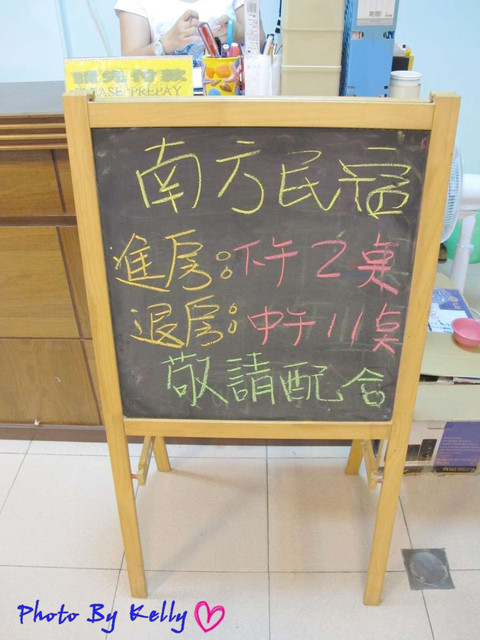 請先付款
PLEASE PREPAY
南方民宿
進房:下午2奌
退房:中午11奌
敬請配合
Photo By Kelly